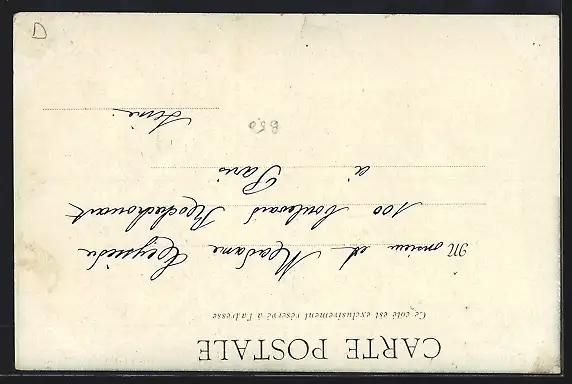 CARTE POSTALE
Ce côté est exclusivement réservé à l'adresse
Monsieur et Madame
100 boulevard Rochechouart
à Paris
Seine
B50
D